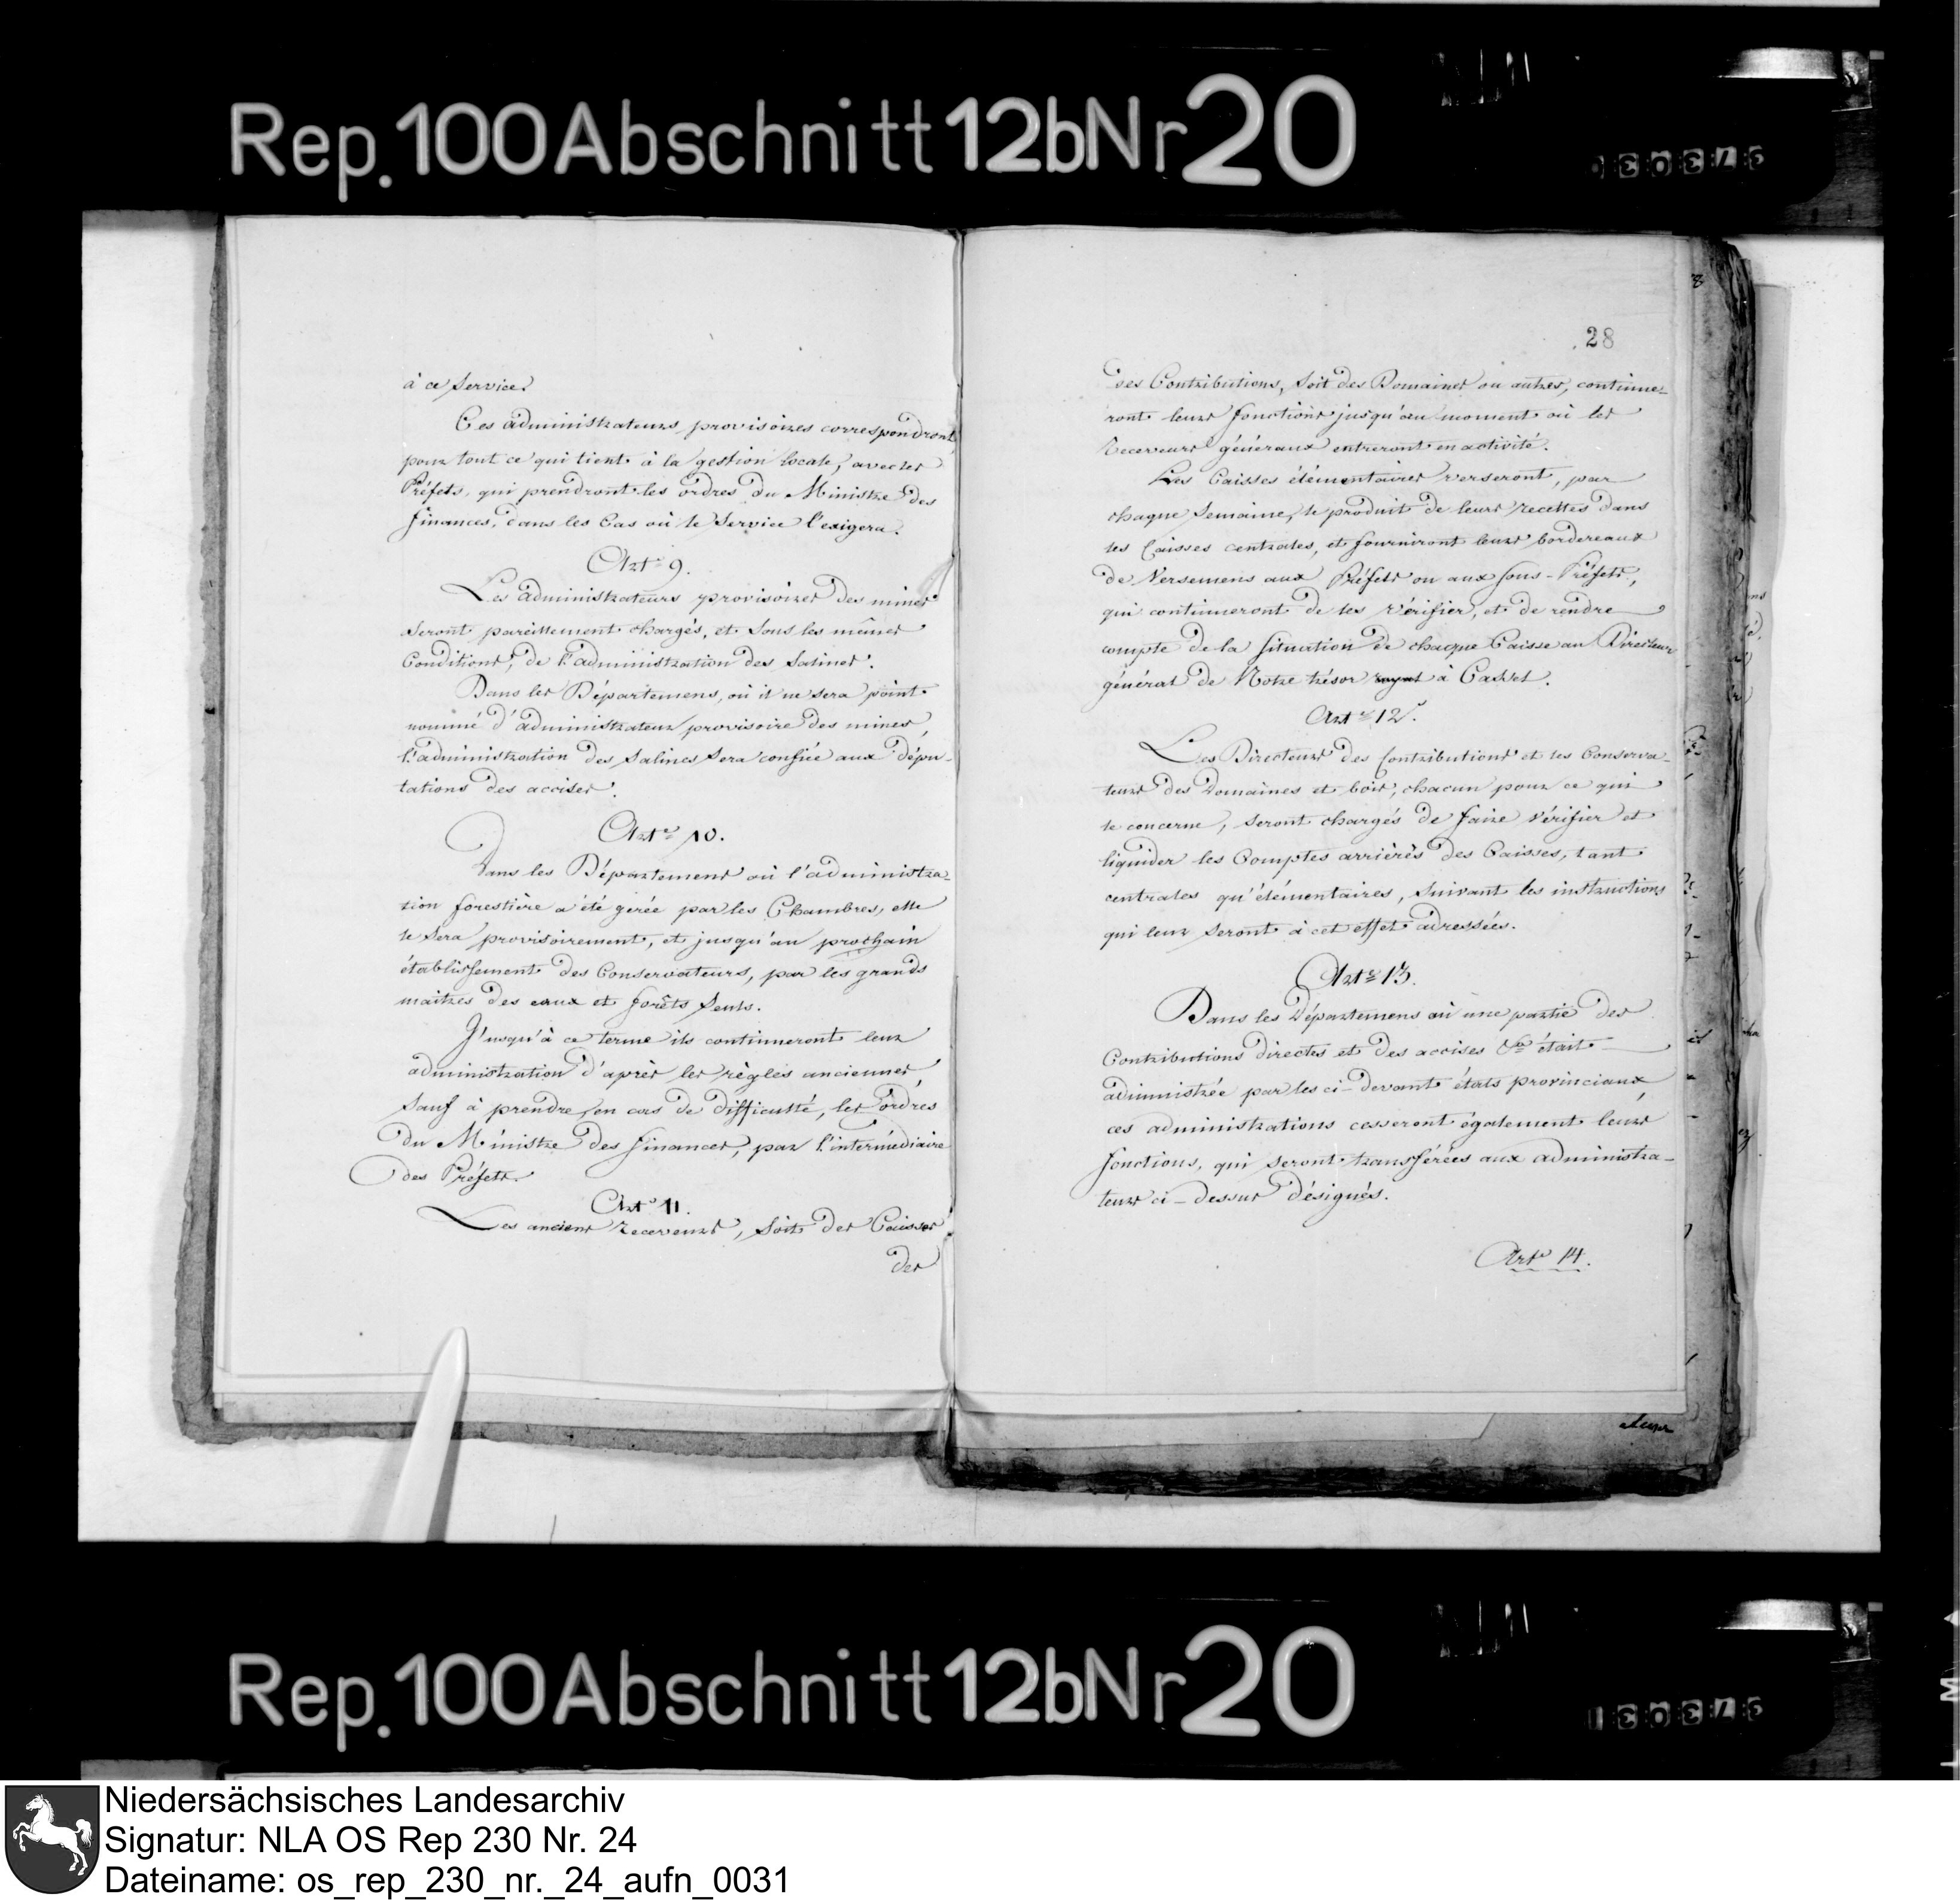 Rep. 100 Abschnitt 12b Nr 20
à ce service.
Ces administrateurs provisoires correspondront
pour tout ce qui tient à la gestion locale, avec les
Préfets, qui prendront les ordres du Ministre des
finances, dans les Cas où le service l'exigera.
Art.e 9.
Les administrateurs provisoires des mines
seront pareillement chargés, et sous les mêmes
Conditions, de l'administration des salines.
Dans les Départemens, où il ne sera point
nommé d'administrateur provisoire des mines,
l'administration des Salines sera confiée aux dépu-
tations des accises.
Art.e 10.
Dans les Départemens où l'administra-
tion forestière a été gérée par les Chambres, elle
le sera provisoirement, et jusqu'au prochain
établissement des Conservateurs, par les grands
maîtres des eaux et forêts seuls.
Jusqu'à ce terme ils continueront leur
administration d'après les règles anciennes,
sauf à prendre, en cas de difficulté, les ordres
du Ministre des finances, par l'intermédiaire
des Préfets.
Art.e 11.
Les anciens receveurs, soit des Caisses
des
28
des Contributions, soit des Domaines ou autres, continue-
ront leurs fonctions jusqu'au moment où les
receveurs généraux entreront en activité.
Les Caisses élémentaires verseront, par
chaque semaine, le produit de leurs recettes dans
les Caisses centrales, et fourniront leurs bordereaux
de Versemens aux Préfets ou aux sous-Préfets,
qui continueront de les vérifier, et de rendre
compte de la situation de chaque Caisse au Directeur
général de Notre trésor royal à Cassel.
Art.e 12.
Les Directeurs des Contributions et les Conserva-
teurs des Domaines et bois, chacun pour ce qui
le concerne, seront chargés de faire vérifier et
liquider les Comptes arriérés des Caisses, tant
centrales qu'élémentaires, suivant les instructions
qui leur seront à cet effet adressées.
Art.e 13.
Dans les Départemens où une partie des
Contributions directes et des accises &.a était
administrée par les ci-devant états provinciaux,
ces administrations cesseront également leurs
fonctions, qui seront transférées aux administra-
teurs ci-dessus désignés.
Art.e 14.
Rep. 100 Abschnitt 12b Nr 20
Niedersächsisches Landesarchiv
Signatur: NLA OS Rep 230 Nr. 24
Dateiname: os_rep_230_nr._24_aufn_0031